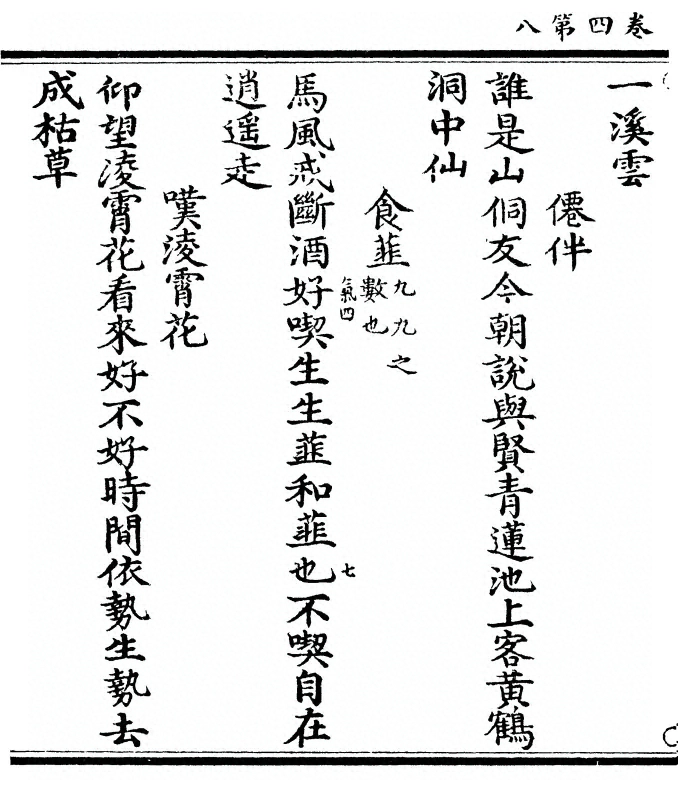 卷四第八
一溪雲
僊伴
誰是山侗友今朝說與賢青蓮池上客黃鶴
洞中仙
食韮九九之數也
馬風戒斷酒好喫生生韮和韮也不喫自在
氣四
七
逍遥走
嘆凌霄花
仰望凌霄花看來好不好時間依勢生勢去
成枯草